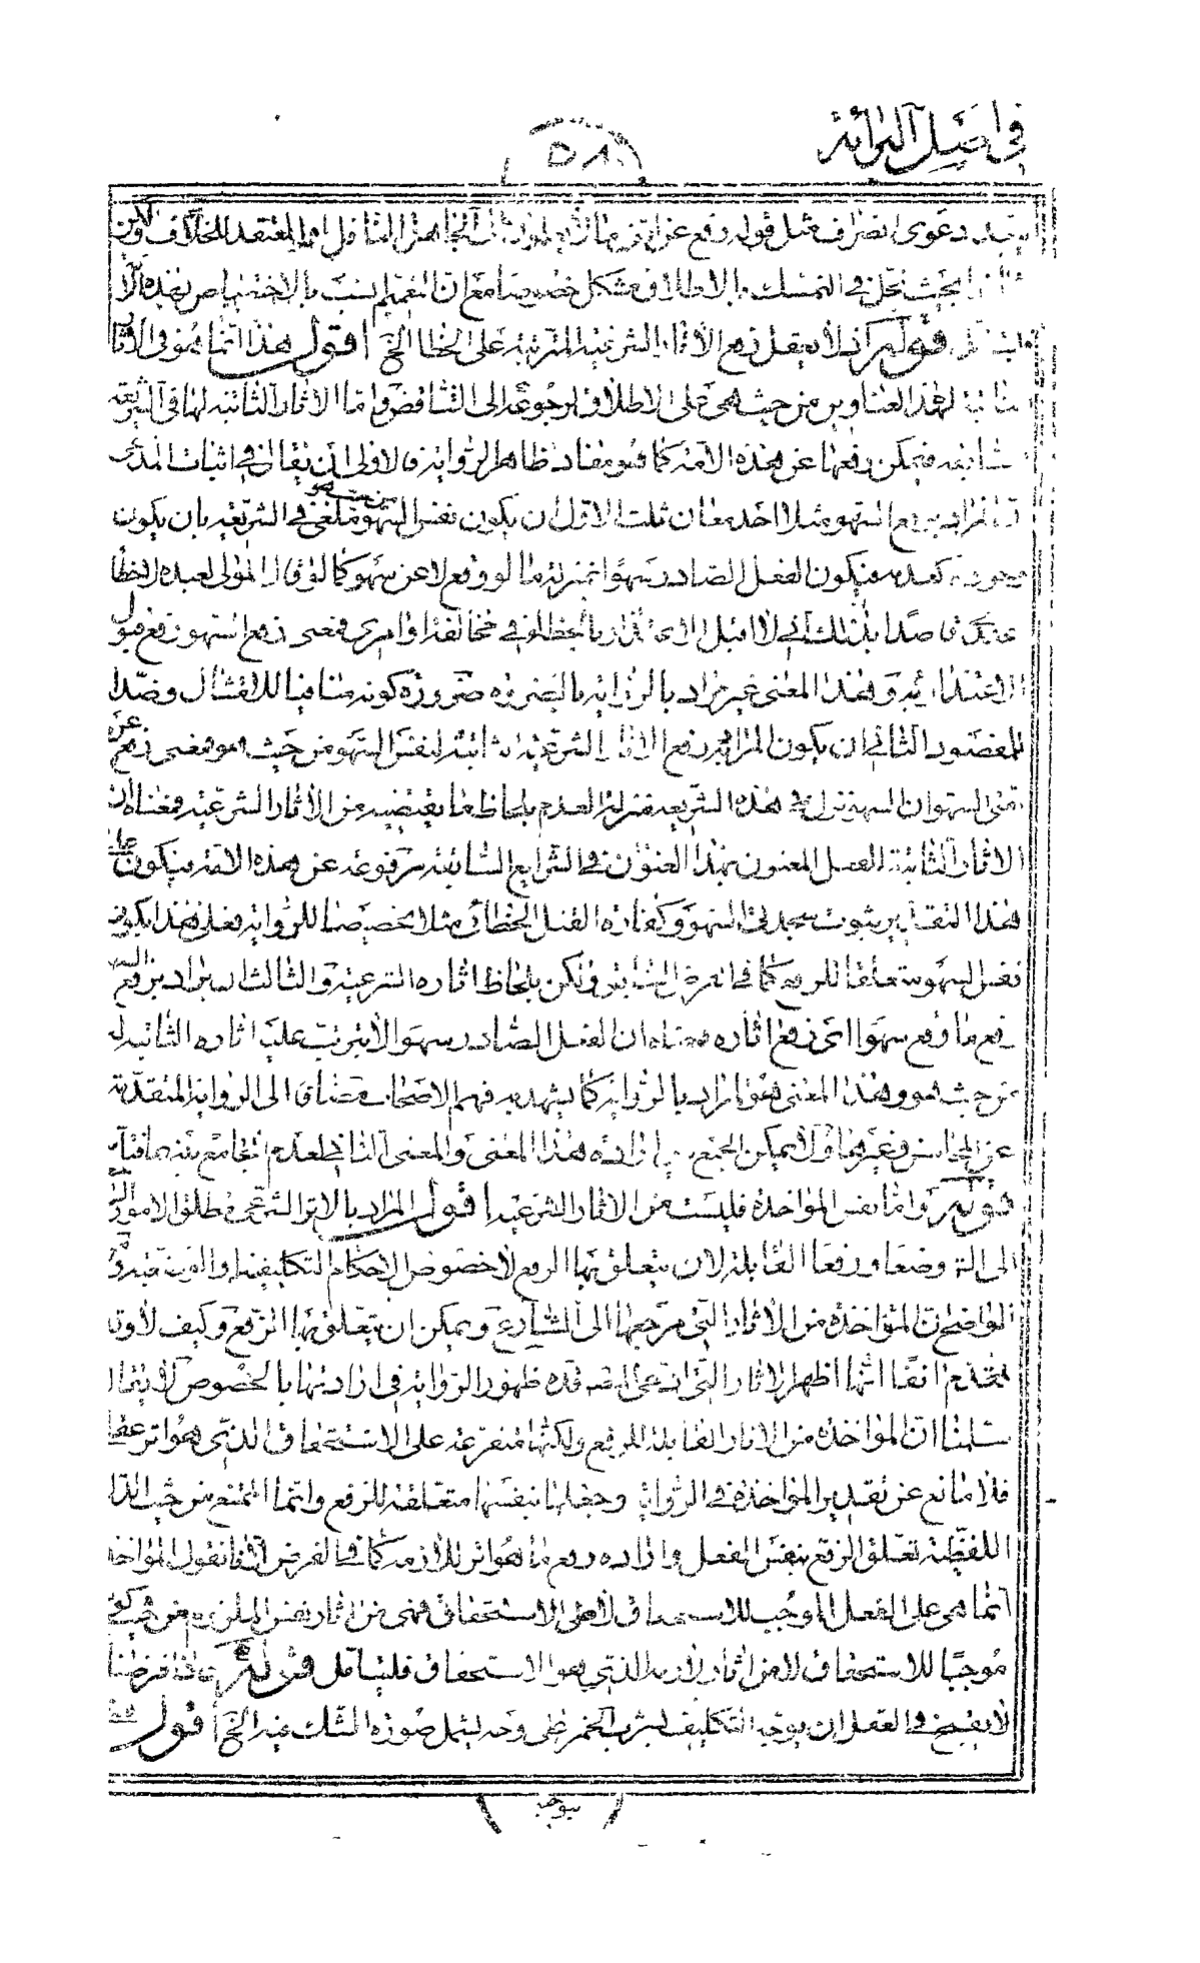 في اصل البرائة
٥٨
دعوى انصراف مثل قوله رفع عن امتي ما لا يعلمون الى الجاهل الغافل اما المعتقد للخلاف لا من
بحيث نحل في التمسك بالاطلاق مشكل خصوصا مع ان التعميم انسب بالاختصاص بهذه الا
قوله لا يعقل رفع الاثار الشرعية المترتبة على الخطا الخ اقول هذا انما هو في الاثار
لهذه العناوين من حيث هي على الاطلاق لرجوعه الى التناقض واما الاثار الثابتة لها في الشريعة
السابقة فيمكن رفعها عن هذه الامة كما هو مفاد ظاهر الرواية فالاولى ان يقال في اثبات المدعى
ان المراد برفع السهو مثلا احد معان ثلث الاول ان يكون نفس السهو من حيث هو ملغى في الشريعة بان يكون
وجوده كعدمه فيكون الفعل الصادر سهوا بمنزلة ما لو وقع لا عن سهو كما لو قال المولى لعبده الخطاء
عندك قاصدا بذلك اني لا اقبل الاعتذار بالخطاء في مخالفة اوامري فمعنى رفع السهو رفع قبول
الاعتذار به وهذا المعنى غير مراد بالرواية بالضرورة ضرورة كونه منافيا للامتنان وضدا
للمقصود الثاني ان يكون المراد رفع الاثار الشرعية الثابتة لنفس السهو من حيث هو فمعنى رفع عن
امتي السهو ان السهو نزل في هذه الشريعة منزلة العدم بلحاظ ما يقتضيه من الاثار الشرعية فمعناه ان
الاثار الثابتة للفعل المعنون بهذا العنوان في الشرايع السابقة مرفوعة عن هذه الامة فيكون على
هذا التقدير ثبوت سجدتي السهو وكفارة القتل الخطائي مثلا تخصيصا للرواية فعلى هذا يكون
نفس السهو متعلقا للرفع كما في الفرض السابق ولكن بلحاظ اثاره الشرعية والثالث ان يراد برفع السهو
رفع ما وقع سهوا اي رفع اثاره فمعناه ان الفعل الصادر سهوا لا يترتب عليه اثاره الثابتة له
من حيث هو وهذا المعنى هو المراد بالرواية كما يشهد به فهم الاصحاب مضافا الى الرواية المتقدمة
عن المحاسن وغيرهما ولا يمكن الجمع بين ارادة هذا المعنى والمعنى الثاني لعدم الجامع بينهما فتأمل
قوله واما نفس المؤاخذة فليست من الاثار الشرعية اقول المراد بالاثر الشرعي مطلق الامور الراجعة
الى الشارع وضعا ورفعا القابلة لان يتعلق بها الرفع لا خصوص الاحكام التكليفية او الوضعية ومن
الواضح ان المؤاخذة من الاثار التي مرجعها الى الشارع ويمكن ان يتعلق بها الرفع وكيف لا وقد
تقدم انفا انها اظهر الاثار التي ادعى المصنف قده ظهور الرواية في ارادتها بالخصوص لا يقال
سلمنا ان المؤاخذة من الاثار القابلة للرفع ولكنها متفرعة على الاستحقاق الذي هو اثر عقلي
فلا مانع عن تقدير المؤاخذة في الرواية وجعلها بنفسها متعلقة للرفع وانما الممتنع من حيث الدلالة
اللفظية تعلق الرفع بنفس الفعل وارادة رفع ما هو اثر للازمه كما في الفرض لانا نقول المؤاخذة
انما هي على الفعل الموجب للاستحقاق لا على الاستحقاق فهي من اثار نفس الملزوم من حيث كونه
موجبا للاستحقاق لا من اثار لازمه الذي هو الاستحقاق فليتأمل قوله فاذا فرضنا
لا يقبح في العقل ان يوجه التكليف بشرب الخمر على وجه يشمل صورة الشك فيه الخ اقول
توجيه